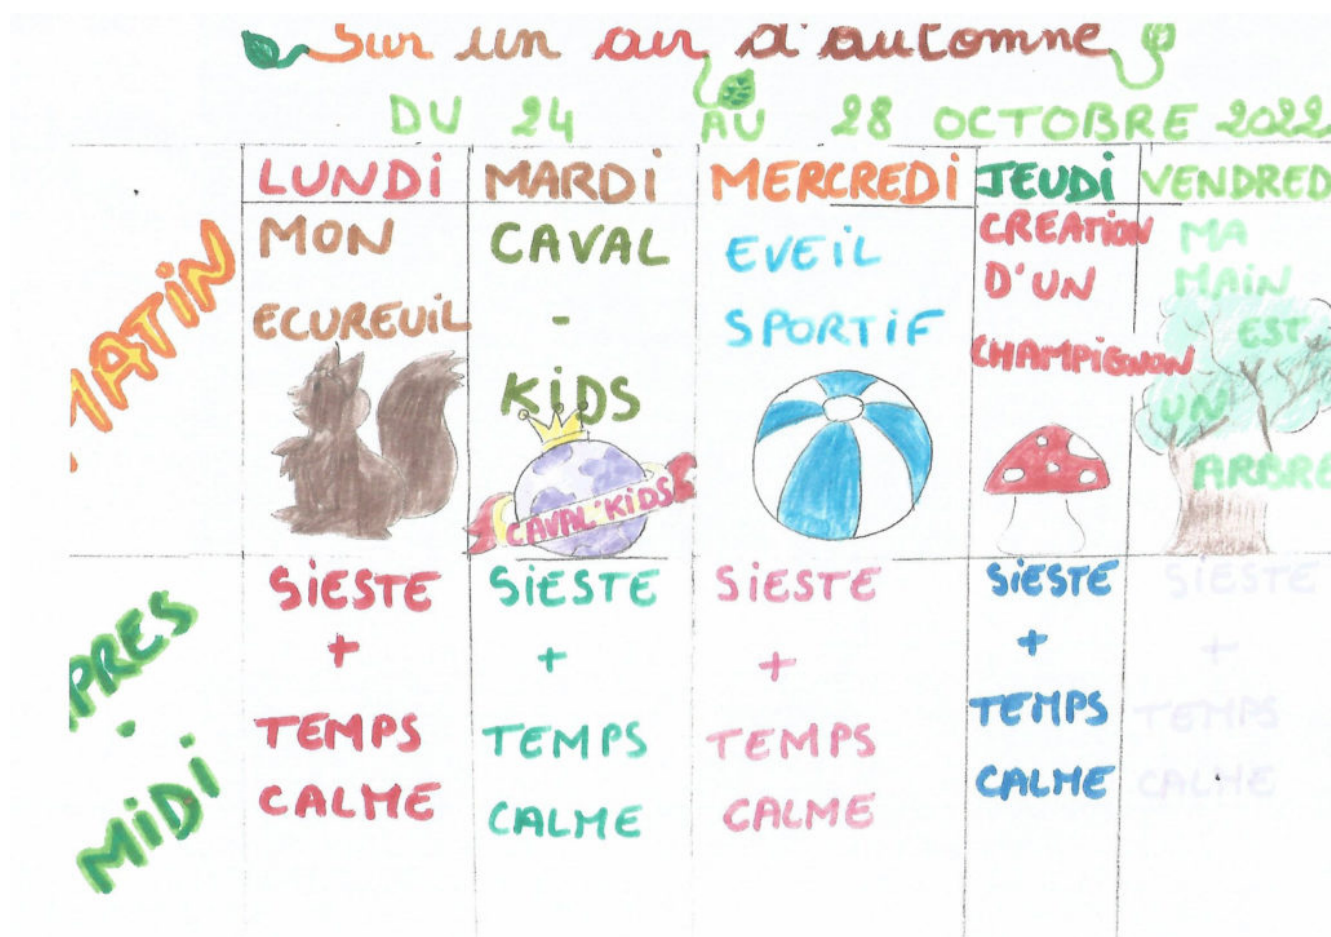 Sur un air d'automne
DU 24 AU 28 OCTOBRE 2022
LUNDI MARDI MERCREDI JEUDI VENDRED
MATIN
MON
ECUREUIL
CAVAL
-
KIDS
CAVAL'KIDS
EVEIL
SPORTIF
CREATION
D'UN
CHAMPIGNON
MA
MAIN
EST
UN
ARBRE
APRES
-
MIDI
SIESTE
+
TEMPS
CALME
SIESTE
+
TEMPS
CALME
SIESTE
+
TEMPS
CALME
SIESTE
+
TEMPS
CALME
SIESTE
+
TEMPS
CALME